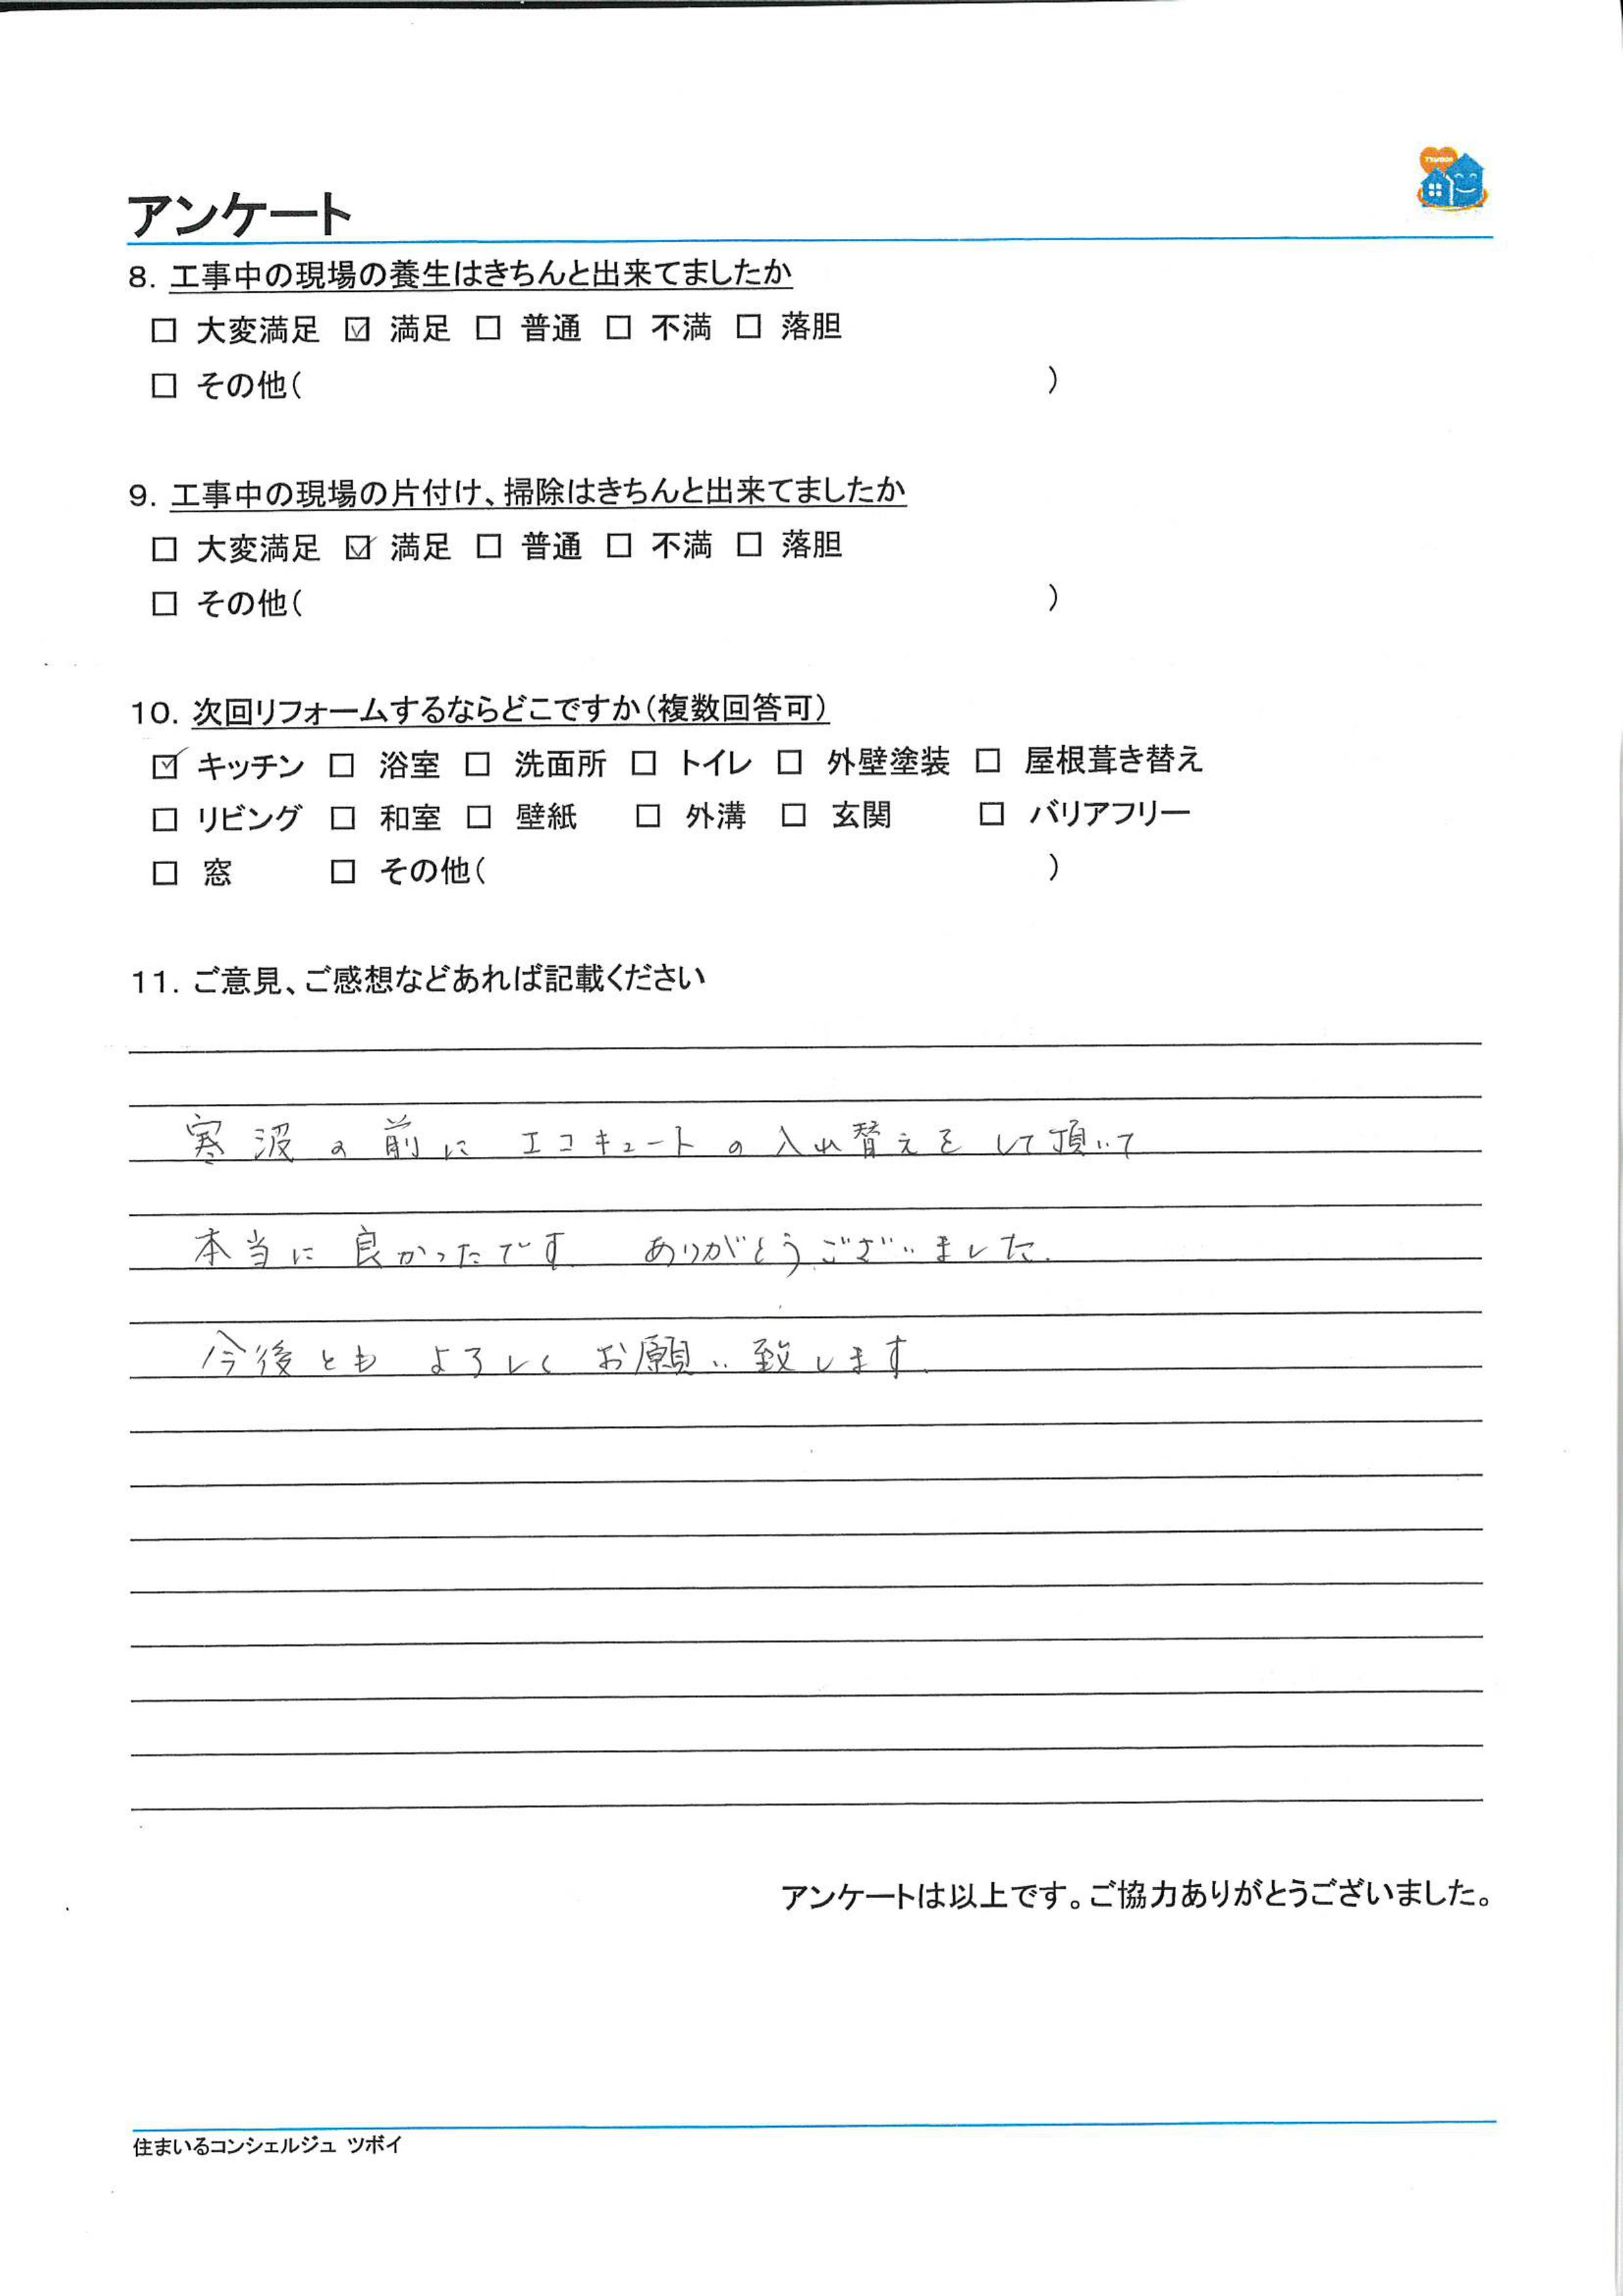 TSUBOI
アンケート
8. 工事中の現場の養生はきちんと出来てましたか
□ 大変満足 ☑ 満足 □ 普通 □ 不満 □ 落胆
□ その他( )
9. 工事中の現場の片付け、掃除はきちんと出来てましたか
□ 大変満足 ☑ 満足 □ 普通 □ 不満 □ 落胆
□ その他( )
10. 次回リフォームするならどこですか(複数回答可)
☑ キッチン □ 浴室 □ 洗面所 □ トイレ □ 外壁塗装 □ 屋根葺き替え
□ リビング □ 和室 □ 壁紙 □ 外溝 □ 玄関 □ バリアフリー
□ 窓 □ その他( )
11. ご意見、ご感想などあれば記載ください
寒波の前に エコキュートの入れ替えをして頂いて
本当に良かったです。ありがとうございました。
今後とも よろしくお願い致します。
アンケートは以上です。ご協力ありがとうございました。
住まいるコンシェルジュ ツボイ